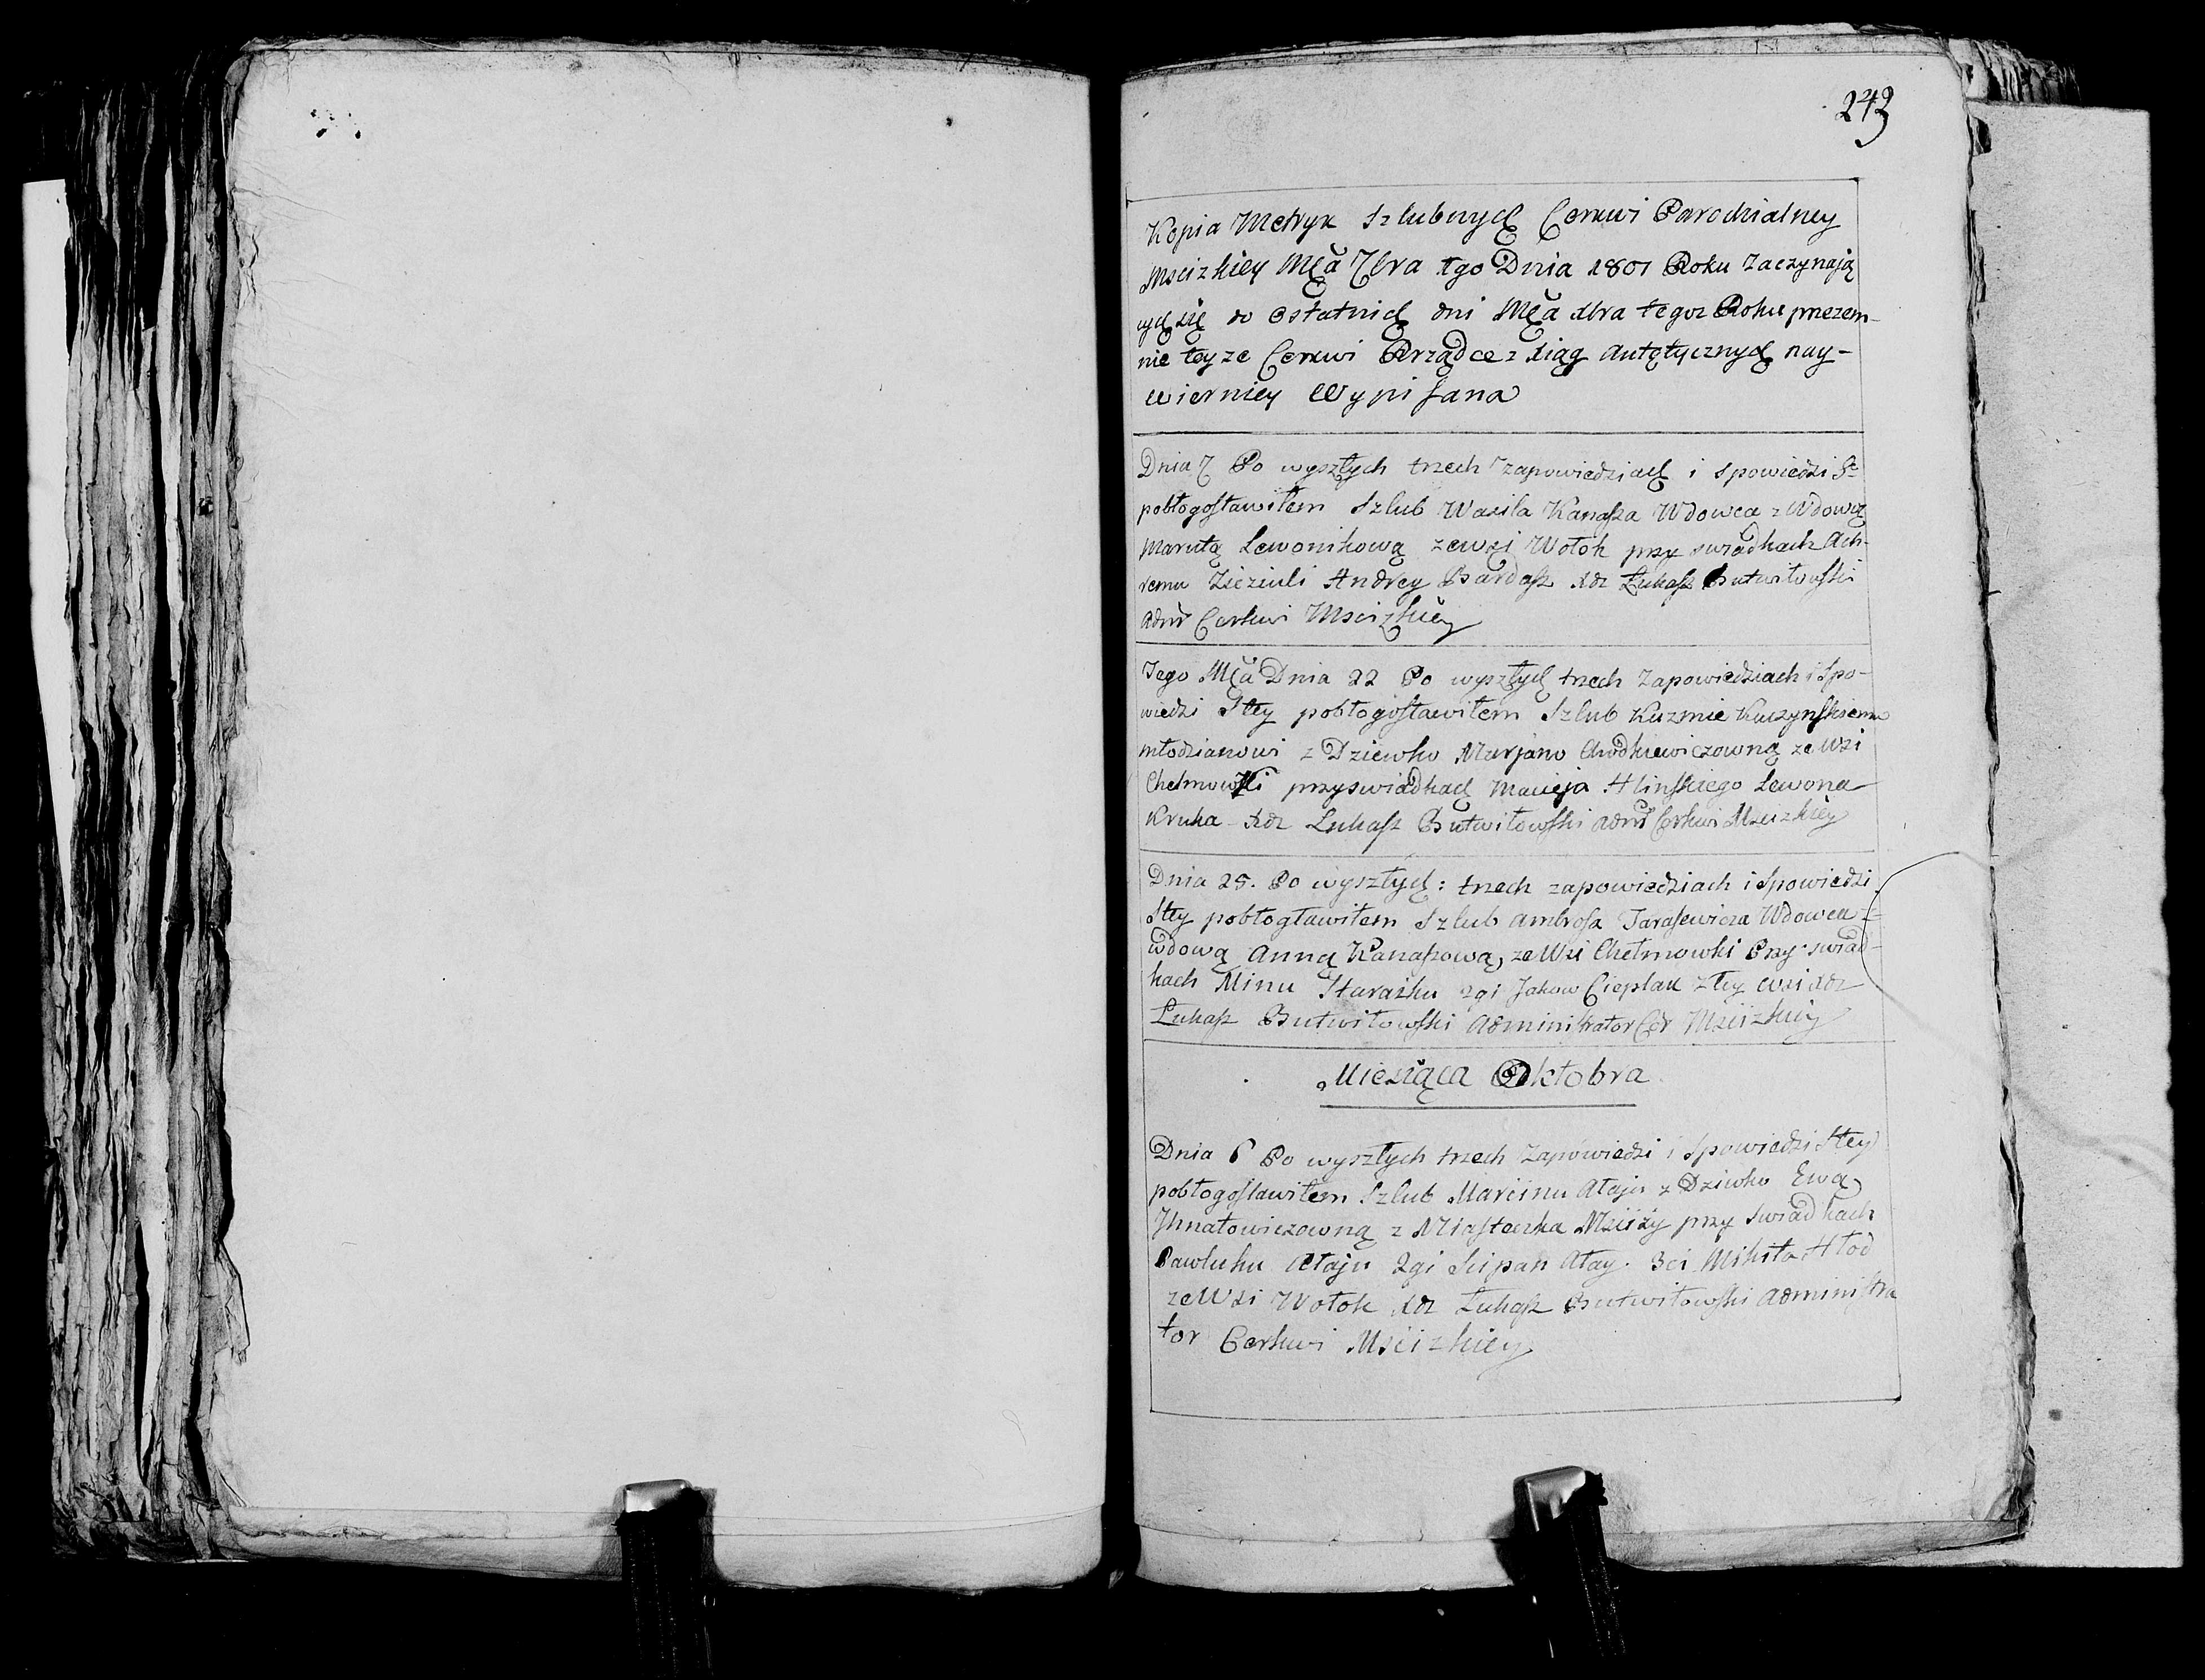 243
Kopia Metryk Szlubnych Cerkwi Parochialney
Mscizkiey Mca 7bra 1go Dnia 1801 Roku zaczynają
cych się do Ostatnich dni Mca Xbra tegoz Roku przezem-
nie teyze Cerkwi Rządce z Xiąg Autętycznych nay-
wierniey Wypisana
Dnia 7 Po wyszłych trzech zapowiedziach i spowiedzi S
pobłogosławiłem Szlub Wasila Kanasza Wdowca z Wdową
Marutą Lewonikową zewsi Wołok przy swiadkach Ach-
remu Zieziuli Andrey Bardasz Xdz Łukasz Butwiłowski
Admr Cerkwi Mscizkiey
Tego Mca Dnia 22 Po wyszłych trzech Zapowiedziach i Spo-
wiedzi Stey pobłogosławiłem Szlub Kuzmie Kuczynskiemu
młodzianowi z Dziewko Marjano Chodkiewiczowną ze Wsi
Chełmowki przyswiadkach Macieja Hlinskiego Lewona
Kruka Xdz Łukasz Butwiłowski Admr Cerkwi Mscizkiey
Dnia 25. Po wyszłych: trzech zapowiedziach i Spowiedzi
Stey pobłogławiłem Szlub Ambrosa Tarasewicza Wdowca z
wdową Anną Kanaszową, ze Wsi Chełmowki Przy swiad-
kach Minu Harasku 2gi Jakow Cieplak z tey wsi Xdz
Łukasz Butwiłowski Administrator Cer Mscizkiey
Miesiąca Oktobra
Dnia 6 Po wyszłych trzech Zapowiedzi i Spowiedzi Stey
pobłogosławiłem Szlub Marcinu Ałaju z Dziewko Ewą
Ihnatowiczowną z Miasteczka Mscizy przy swiadkach
Pawluku Ałaju 2gi Scipan Ałay. 3ci Mikita Hłod
ze Wsi Wołok Xdz Łukasz Butwiłowski Administra
tor Cerkwi Mscizkiey